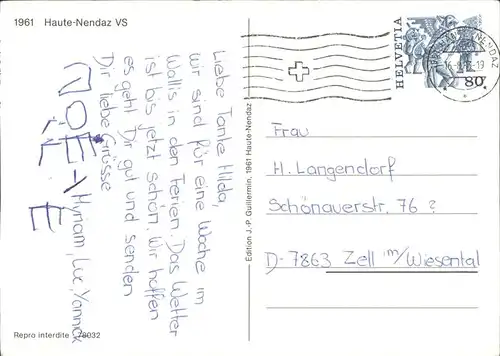 1961 Haute-Nendaz VS
Liebe Tante Hilda,
wir sind für eine Woche im
Wallis in den Ferien. Das Wetter
ist bis jetzt schön. Wir hoffen
es geht Dir gut und senden
Dir liebe Grüsse
Myriam, Luc, Yannick
NOE
Edition J.-P. Guillermin, 1961 Haute-Nendaz
Repro interdite 78032
HELVETIA
80
NENDAZ
Frau
H. Langendorf
Schönauerstr. 76 ?
D-7863 Zell im/Wiesental